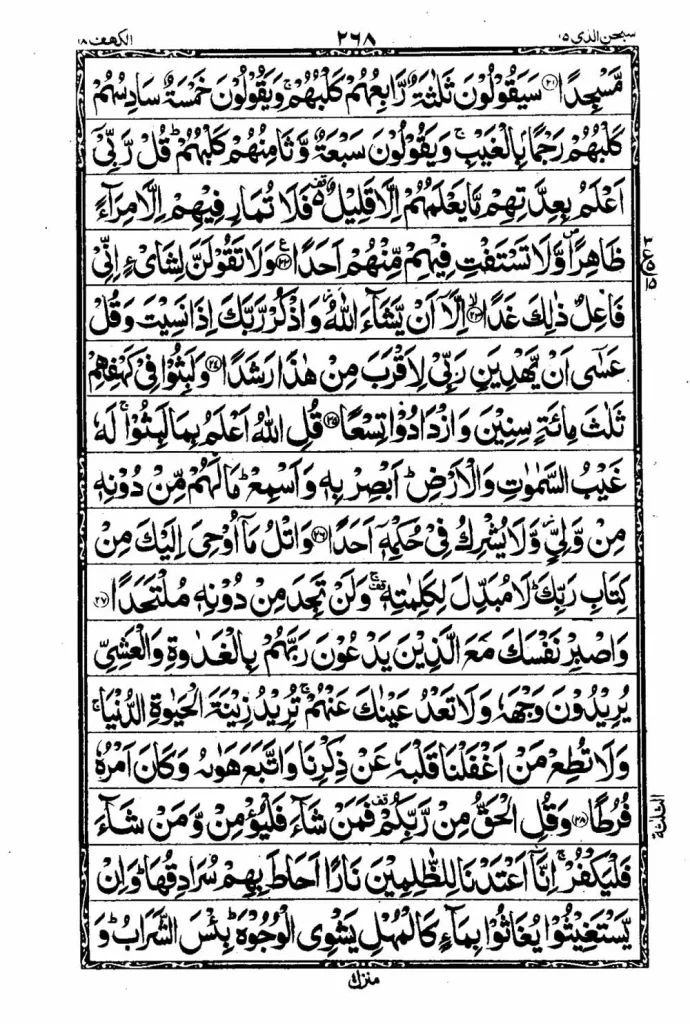 سبحن الذی ١٥ ٢٦٨ الكهف ١٨
مَّسْجِدًا ﴿٢١﴾ سَيَقُوْلُوْنَ ثَلٰثَةٌ رَّابِعُهُمْ كَلْبُهُمْ ۚ وَيَقُوْلُوْنَ خَمْسَةٌ سَادِسُهُمْ
كَلْبُهُمْ رَجْمًۢا بِالْغَيْبِ ۚ وَيَقُوْلُوْنَ سَبْعَةٌ وَّثَامِنُهُمْ كَلْبُهُمْ ؕ قُلْ رَّبِّيْٓ
اَعْلَمُ بِعِدَّتِهِمْ مَّا يَعْلَمُهُمْ اِلَّا قَلِيْلٌ ۵ فَلَا تُمَارِ فِيْهِمْ اِلَّا مِرَآءً
ظَاهِرًا ۪ وَّلَا تَسْتَفْتِ فِيْهِمْ مِّنْهُمْ اَحَدًا ﴿٢٢﴾ وَلَا تَقُوْلَنَّ لِشَايْءٍ اِنِّيْ
فَاعِلٌ ذٰلِكَ غَدًا ﴿٢٣﴾ اِلَّآ اَنْ يَّشَآءَ اللّٰهُ ۫ وَاذْكُرْ رَّبَّكَ اِذَا نَسِيْتَ وَقُلْ
عَسٰٓى اَنْ يَّهْدِيَنِ رَبِّيْ لِاَقْرَبَ مِنْ هٰذَا رَشَدًا ﴿٢٤﴾ وَلَبِثُوْا فِيْ كَهْفِهِمْ
ثَلٰثَ مِائَةٍ سِنِيْنَ وَازْدَادُوْا تِسْعًا ﴿٢٥﴾ قُلِ اللّٰهُ اَعْلَمُ بِمَا لَبِثُوْا ۚ لَهٗ
غَيْبُ السَّمٰوٰتِ وَالْاَرْضِ ؕ اَبْصِرْ بِهٖ وَاَسْمِعْ ؕ مَا لَهُمْ مِّنْ دُوْنِهٖ
مِنْ وَّلِيٍّ ۫ وَّلَا يُشْرِكُ فِيْ حُكْمِهٖٓ اَحَدًا ﴿٢٦﴾ وَاتْلُ مَآ اُوْحِيَ اِلَيْكَ مِنْ
كِتَابِ رَبِّكَ ؕ لَا مُبَدِّلَ لِكَلِمٰتِهٖ ۚ وَلَنْ تَجِدَ مِنْ دُوْنِهٖ مُلْتَحَدًا ﴿٢٧﴾
وَاصْبِرْ نَفْسَكَ مَعَ الَّذِيْنَ يَدْعُوْنَ رَبَّهُمْ بِالْغَدٰوةِ وَالْعَشِيِّ
يُرِيْدُوْنَ وَجْهَهٗ وَلَا تَعْدُ عَيْنٰكَ عَنْهُمْ ۚ تُرِيْدُ زِيْنَةَ الْحَيٰوةِ الدُّنْيَا ۚ
وَلَا تُطِعْ مَنْ اَغْفَلْنَا قَلْبَهٗ عَنْ ذِكْرِنَا وَاتَّبَعَ هَوٰىهُ وَكَانَ اَمْرُهٗ
فُرُطًا ﴿٢٨﴾ وَقُلِ الْحَقُّ مِنْ رَّبِّكُمْ ۟ فَمَنْ شَآءَ فَلْيُؤْمِنْ وَّمَنْ شَآءَ
الثلثة
فَلْيَكْفُرْ ۚ اِنَّآ اَعْتَدْنَا لِلظّٰلِمِيْنَ نَارًا اَحَاطَ بِهِمْ سُرَادِقُهَا ؕ وَاِنْ
يَّسْتَغِيْثُوْا يُغَاثُوْا بِمَآءٍ كَالْمُهْلِ يَشْوِى الْوُجُوْهَ ؕ بِئْسَ الشَّرَابُ ؕ وَ